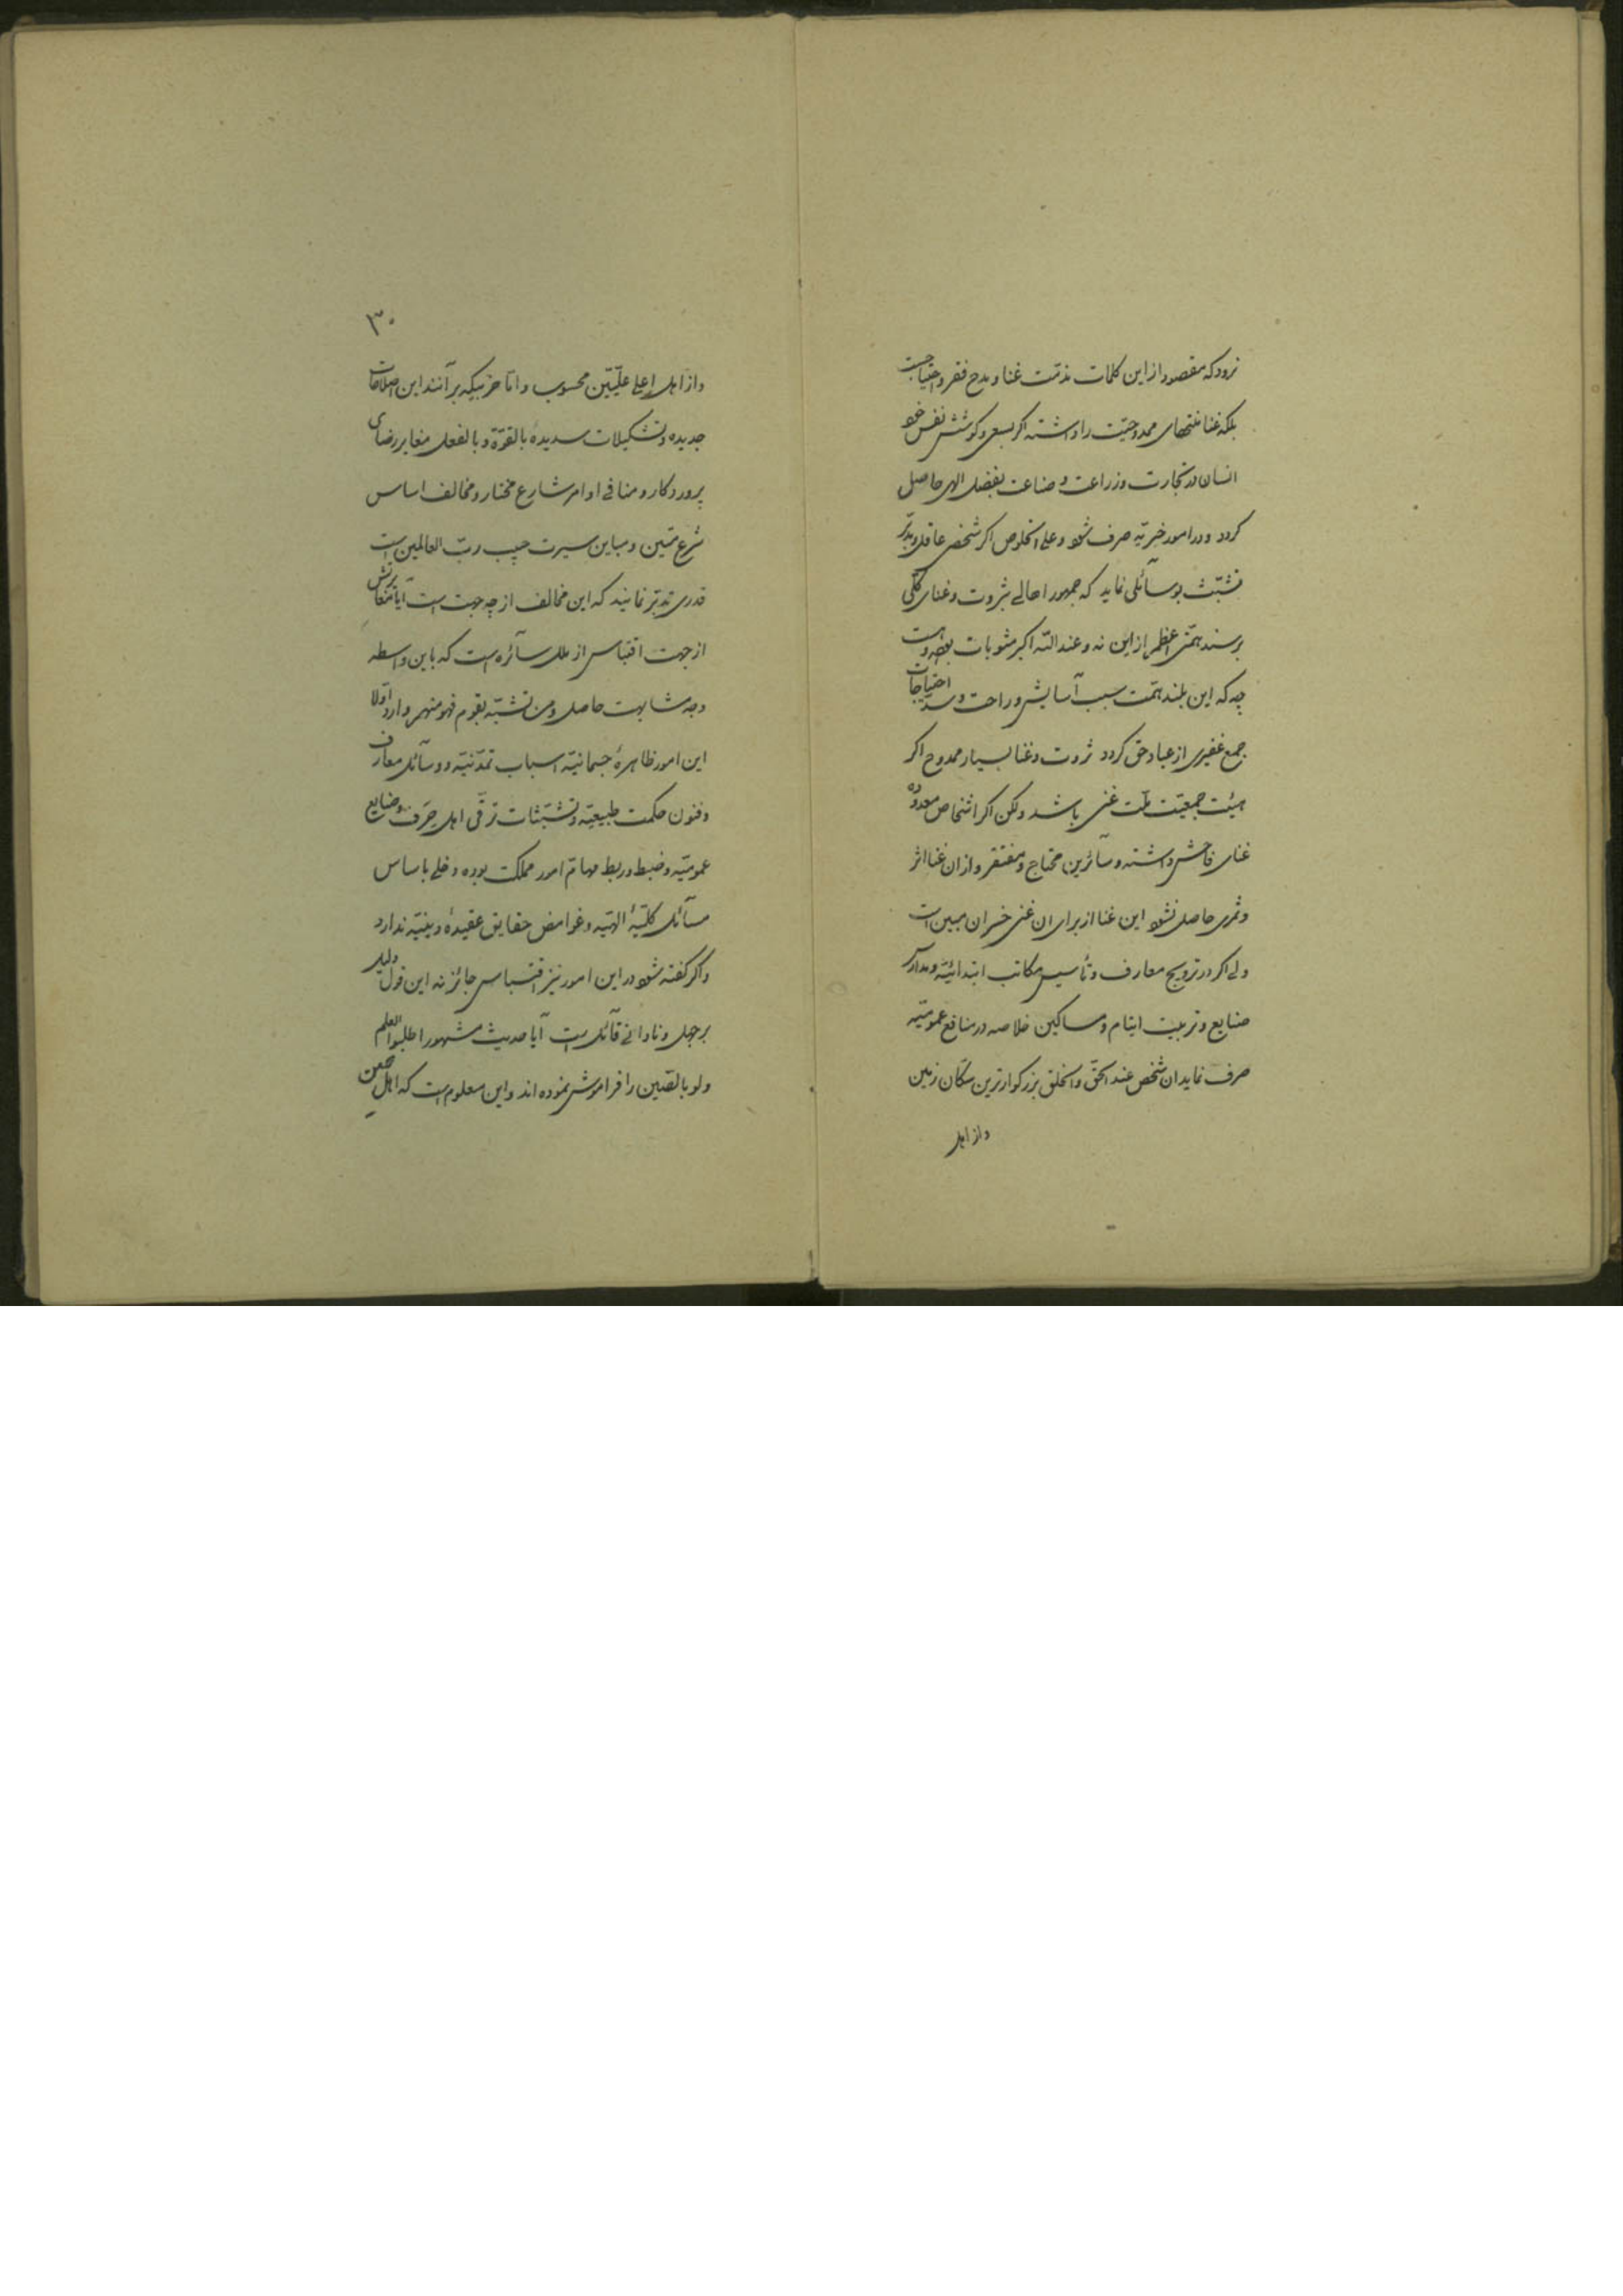 نرود که مقصود از این کلمات مذمّت غنا و مدح فقر و احتیاجست
بلکه غنا منتهای ممدوحیّت را داشته اکر بسعی و کوشش نفس خود
انسان در تجارت و زراعت و صناعت بفضل الهی حاصل
کردد و در امور خیریّه صرف شود و علی الخلوص اکر شخصی عاقل و مدبّر
تشبّث بوسآئلی نماید که جمهور اهالی بثروت و غنای کلّی
برسند همّتی اعظم از این نه و عند اللّه اکبر مثوبات بوده و هست
چه که این بلند همّت سبب آسایش و راحت و سدّ احتیاجات
جمع غفیری از عباد حق کردد ثروت و غنا بسیار ممدوح اکر
هیئت جمعیّت ملّت غنی باشد ولکن اکر اشخاص معدوده
غنای فاحش داشته و سآئرین محتاج و مفتقر و از ان غنا اثر
و ثمری حاصل نشود این غنا از برای ان غنی خسران مبین است
ولی اکر در ترویج معارف و تأسیس مکاتب ابتدائیّه و مدارس
صنایع و تربیت ایتام و مساکین خلاصه در منافع عمومیّه
صرف نماید ان شخص عند الحق و الخلق بزرکوارترین سکّان زمین
و از اهل
۳۰
و از اهل اعلی علّیّین محسوب و امّا حزبیکه بر آنند این اصلاحات
جدیده و تشکیلات سدیدهٔ بالقوّة و بالفعل مغایر رضای
پروردکار و منافی اوامر شارع مختار و مخالف اساس
شرع متین و مباین سیرت حبیب ربّ العالمین است
قدری تدبّر نمایند که این مخالف از چه جهت است آیا مغایرتش
از جهت اقتباس از ملل سآئره است که باین واسطه
وجه مشابهت حاصل و من تشبّه بقوم فهو منهم وارد اوّلا
این امور ظاهرهٔ جسمانیّه اسباب تمدّنیّه و وسآئل معارف
و فنون حکمت طبیعیّه و تشبّثات ترقّی اهل حِرَف و صنایع
عمومیّه و ضبط و ربط مهامّ امور مملکت بوده دخلی باساس
مسآئل کلّیّهٔ الهیّه و غوامض حقایق عقیدهٔ دینیّه ندارد
و اکر کفته شود در این امور نیز اقتباس جائز نه این قول دلیل
بر جهل و نادانی قآئل است آیا حدیث مشهور اطلبوا العلم
ولو بالصّین را فراموش نموده‌اند و این معلوم است که اهل صین